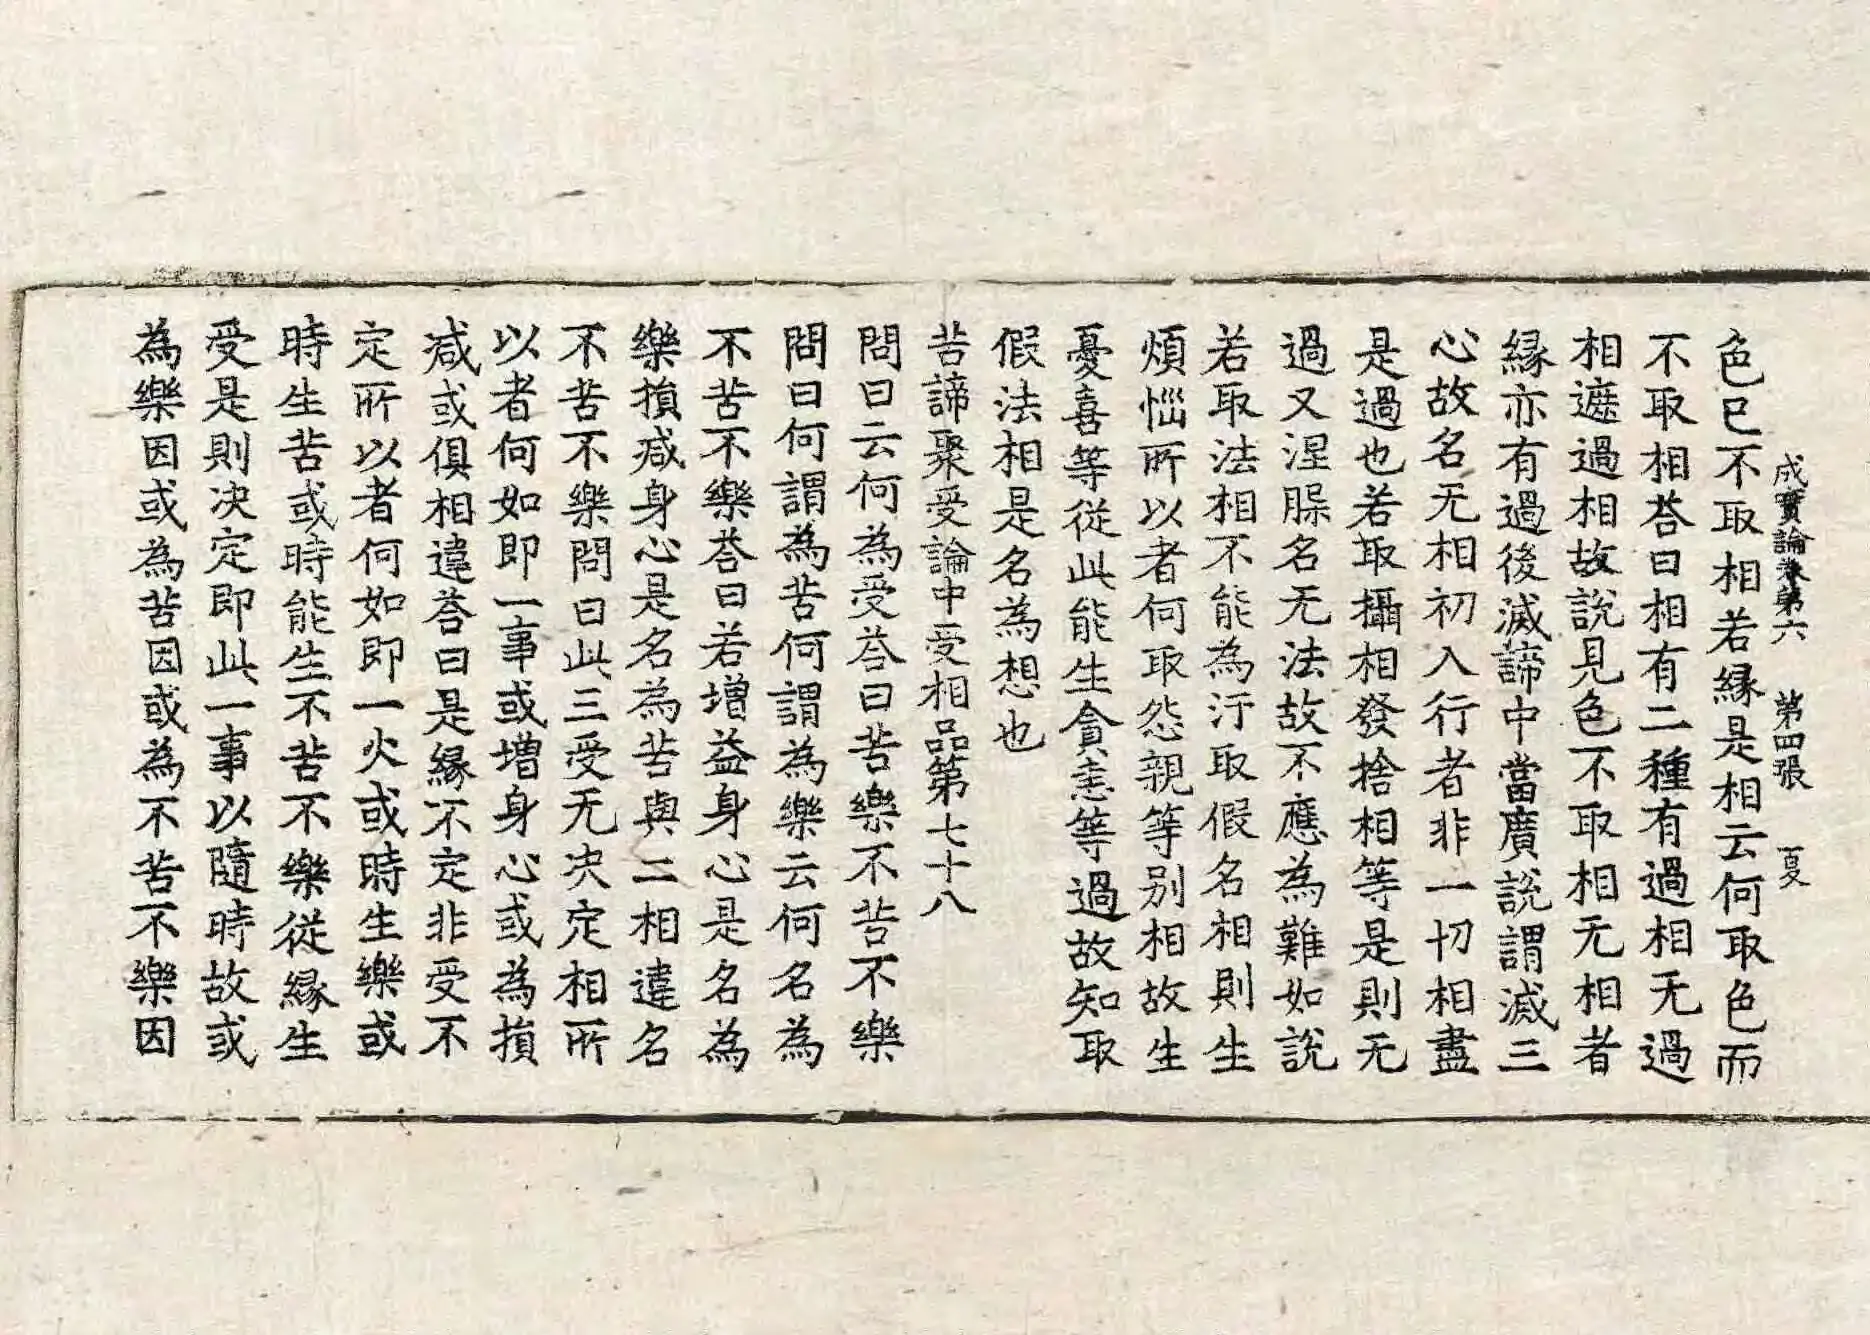 成實論卷第六 第四張 夏
色已不取相若縁是相云何取色而
不取相荅曰相有二種有過相无過
相遮過相故說見色不取相无相者
縁亦有過後滅諦中當廣說謂滅三
心故名无相初入行者非一切相盡
是過也若取攝相發捨相等是則无
過又涅槃名无法故不應為難如說
若取法相不能為汙取假名相則生
煩惱所以者何取怨親等别相故生
憂喜等從此能生貪恚等過故知取
假法相是名為想也
苦諦聚受論中受相品第七十八
問曰云何為受荅曰苦樂不苦不樂
問曰何謂為苦何謂為樂云何名為
不苦不樂荅曰若增益身心是名為
樂損减身心是名為苦與二相違名
不苦不樂問曰此三受无决定相所
以者何如即一事或增身心或為損
减或俱相違荅曰是縁不定非受不
定所以者何如即一火或時生樂或
時生苦或時能生不苦不樂從縁生
受是則决定即此一事以隨時故或
為樂因或為苦因或為不苦不樂因